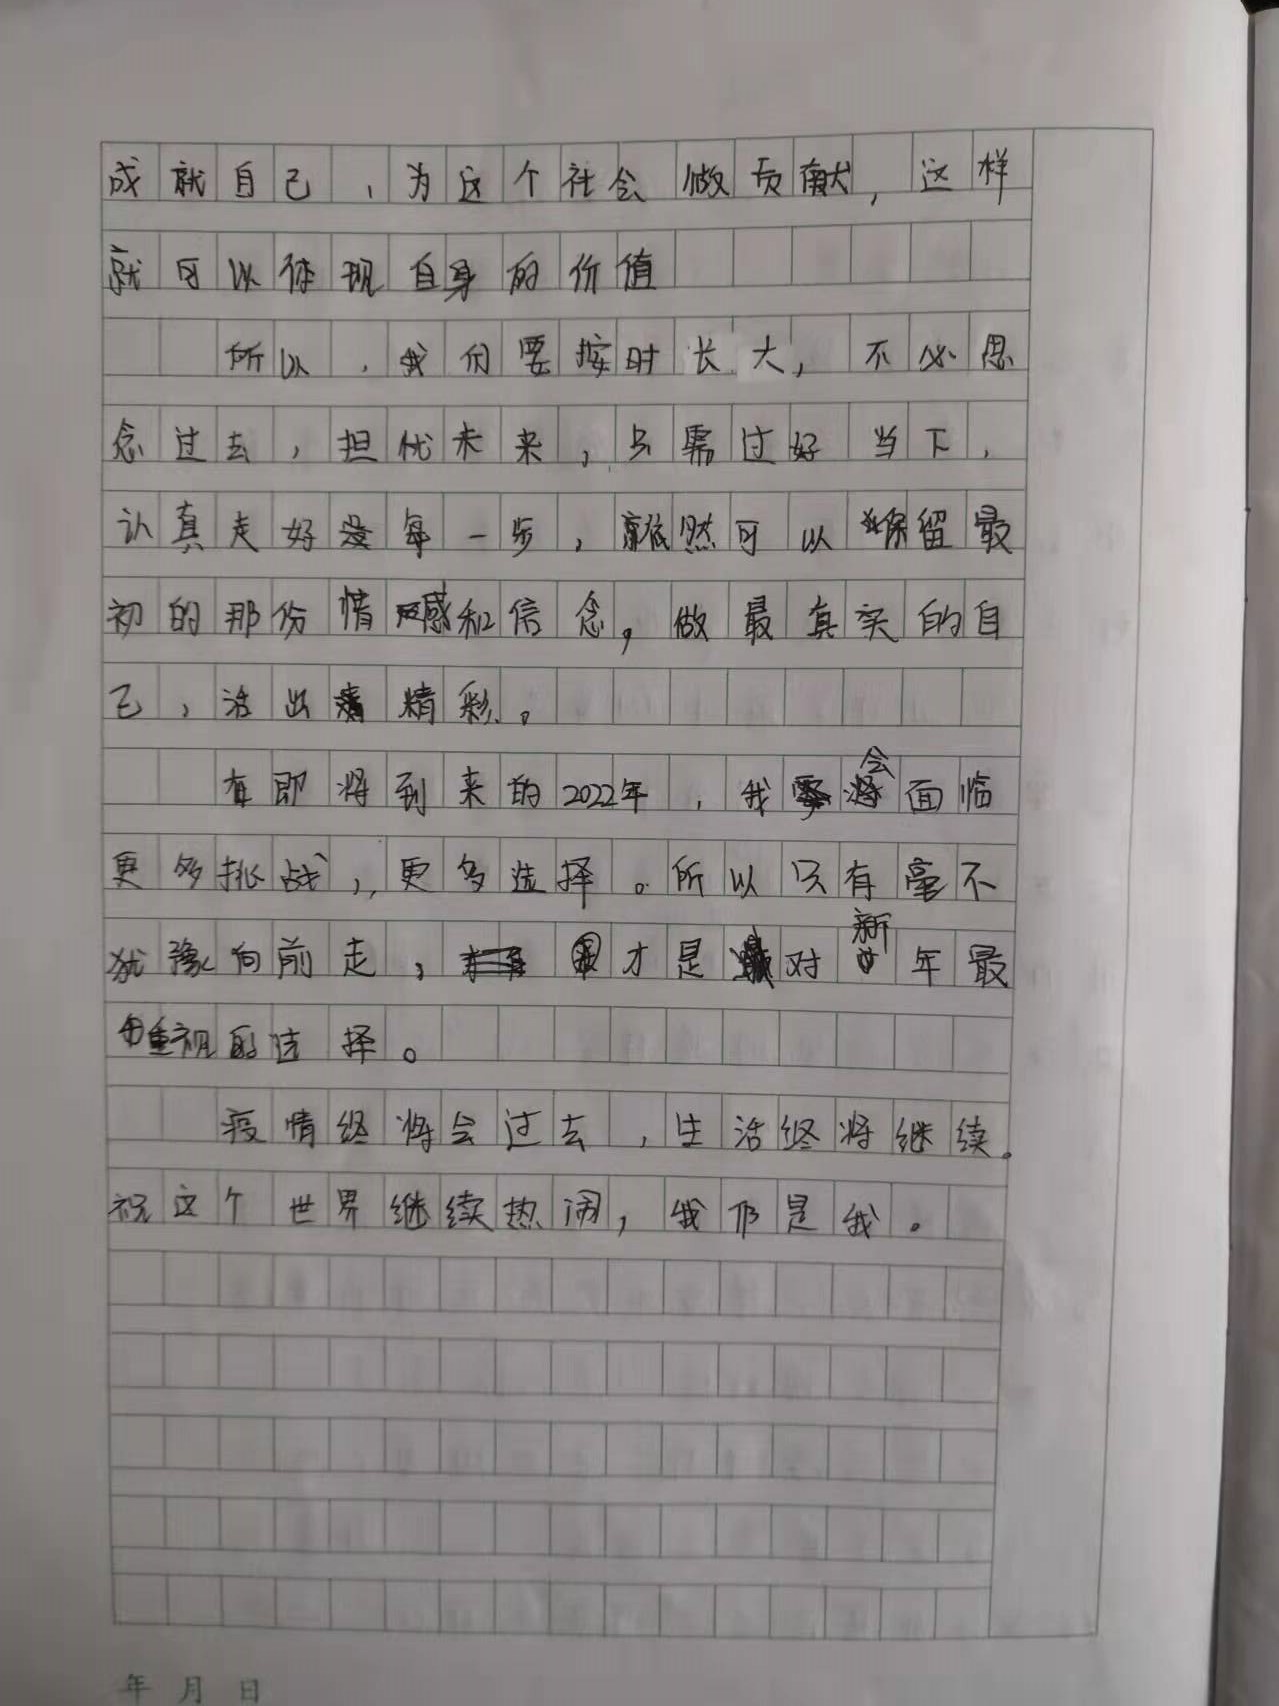 成就自己，为这个社会做贡献，这样
就可以体现自身的价值
所以，我们要按时长大，不必思
念过去，担忧未来，只需过好当下，
认真走好每一步，依然可以保留最
初的那份情感和信念，做最真实的自
己，活出精彩。
在即将到来的2022年，我会面临
更多挑战，更多选择。所以只有毫不
犹豫向前走，才是对新年最
重视的选择。
疫情终将会过去，生活终将继续。
祝这个世界继续热闹，我仍是我。
年 月 日